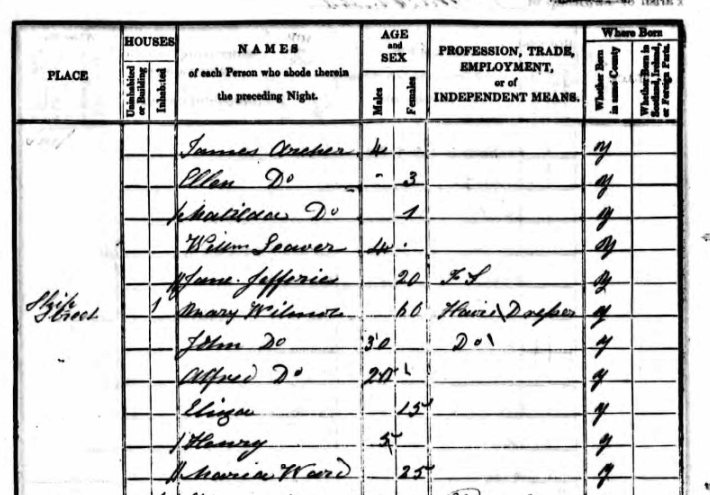 PLACE
HOUSES
Uninhabited or Building
Inhabited
NAMES
of each Person who abode therein
the preceding Night.
AGE
and
SEX
Males
Females
PROFESSION, TRADE,
EMPLOYMENT,
or of
INDEPENDENT MEANS.
Where Born
Whether Born in same County
Whether Born in Scotland, Ireland, or Foreign Parts.
James Archer 4 y
Ellen Do 3 y
Matilda Do 1 y
Willm Seaver 4 y
Jane Jefferies 20 F S y
Ship Street 1 Mary Wilmot 60 Hair Dresser y
John Do 30 Do y
Alfred Do 20 y
Eliza 15 y
Henry 5 y
Maria Ward 25 y